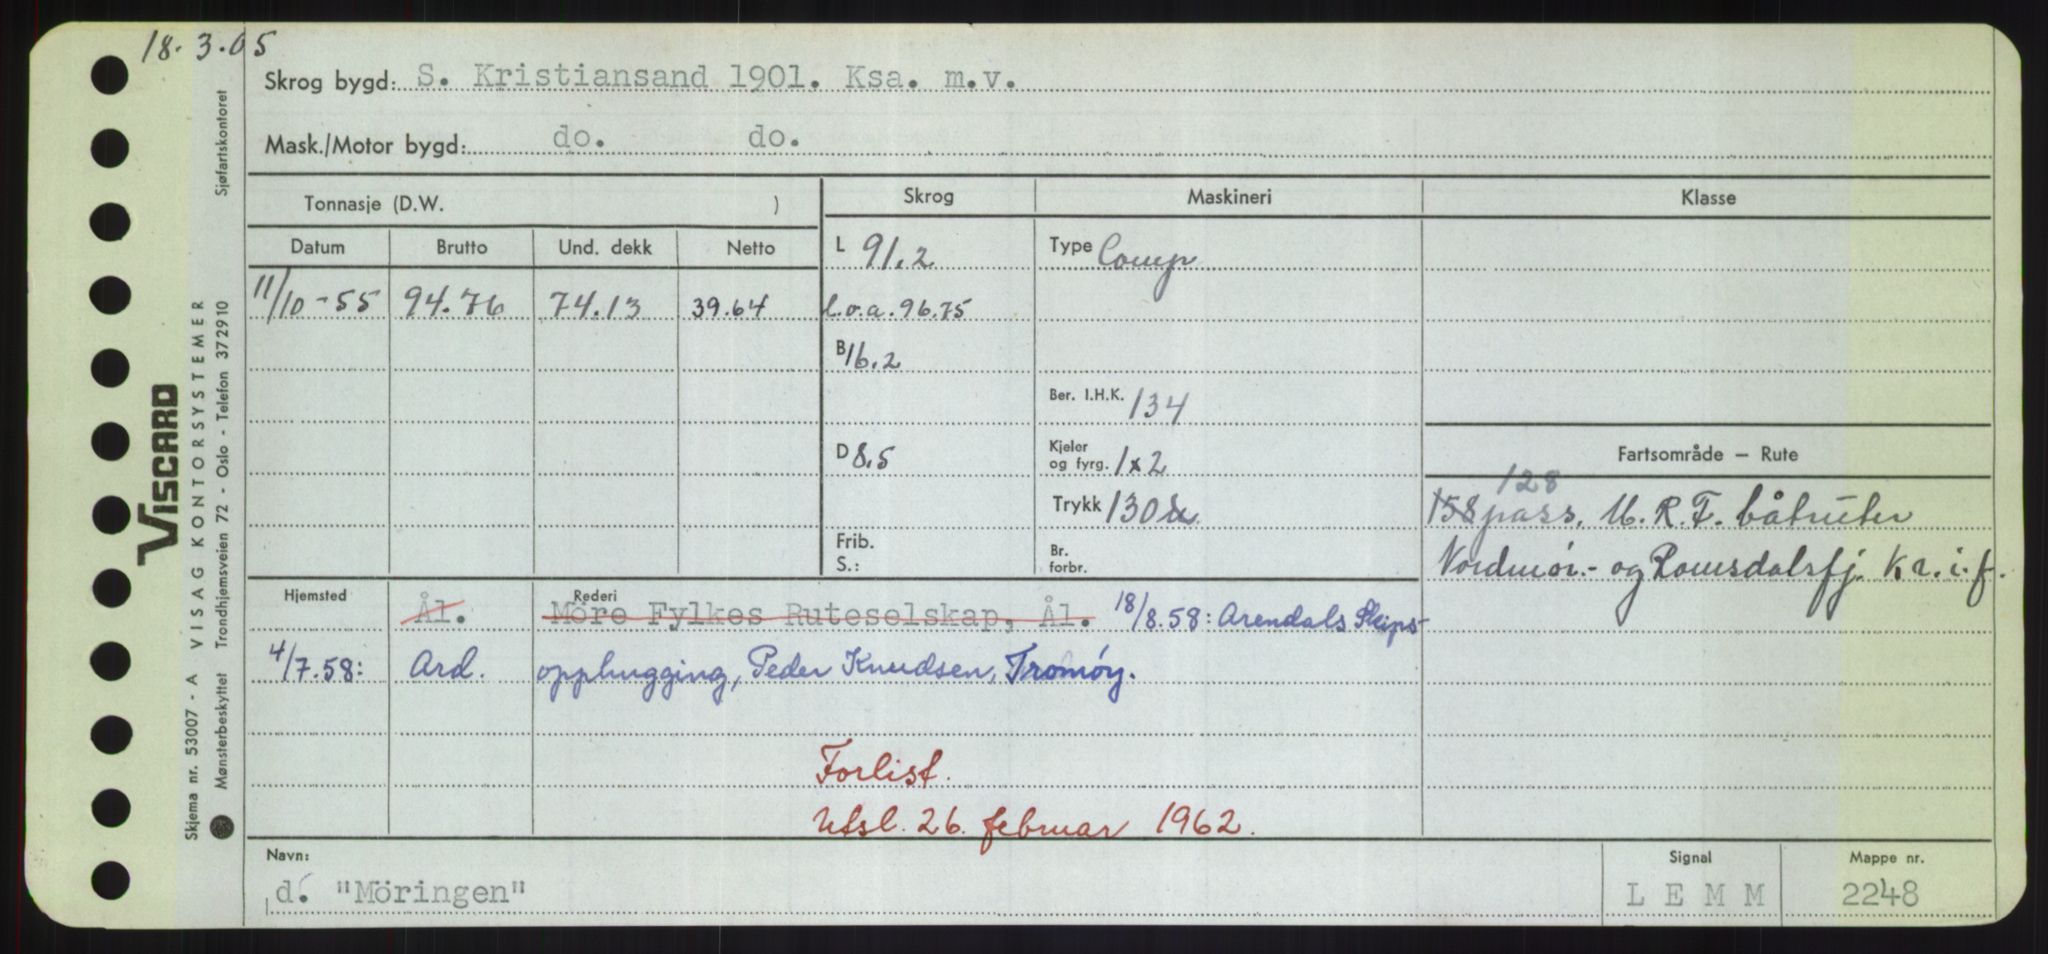 18.3.05
Skrog bygd: S. Kristiansand 1901. Ksa. m.v.
Mask./Motor bygd: do. do.
Tonnasje (D.W. ) Skrog Maskineri Klasse
Datum Brutto Und. dekk Netto L 91.2 Type Comp
11/10-55 94.76 74.13 39.64 l.o.a. 96.75
B 16.2
Ber. I.H.K. 134
D 8.5 Kjeler og fyrg. 1x2 Fartsområde — Rute
128
Trykk 130 158 pass. M.R.F. båtruter
Frib. Br. Nordmør.- og Romsdalsfj. Kr.i.f.
S.: forbr.
Hjemsted Ål. Rederi Möre Fylkes Ruteselskap, Ål. 18/8.58: Arendals Skips-
4/7.58: Ard. opphugging, Peder Knudsen, Tromøy.
Forlist.
Utsl. 26. februar 1962.
Navn: Signal Mappe nr.
d. "Möringen" L E M M 2248
VISCARD
VISAG KONTORSYSTEMER
Skjema nr. 53007 - A
Mønsterbeskyttet Trondhjemsveien 72 - Oslo - Telefon 372910 Sjøfartskontoret